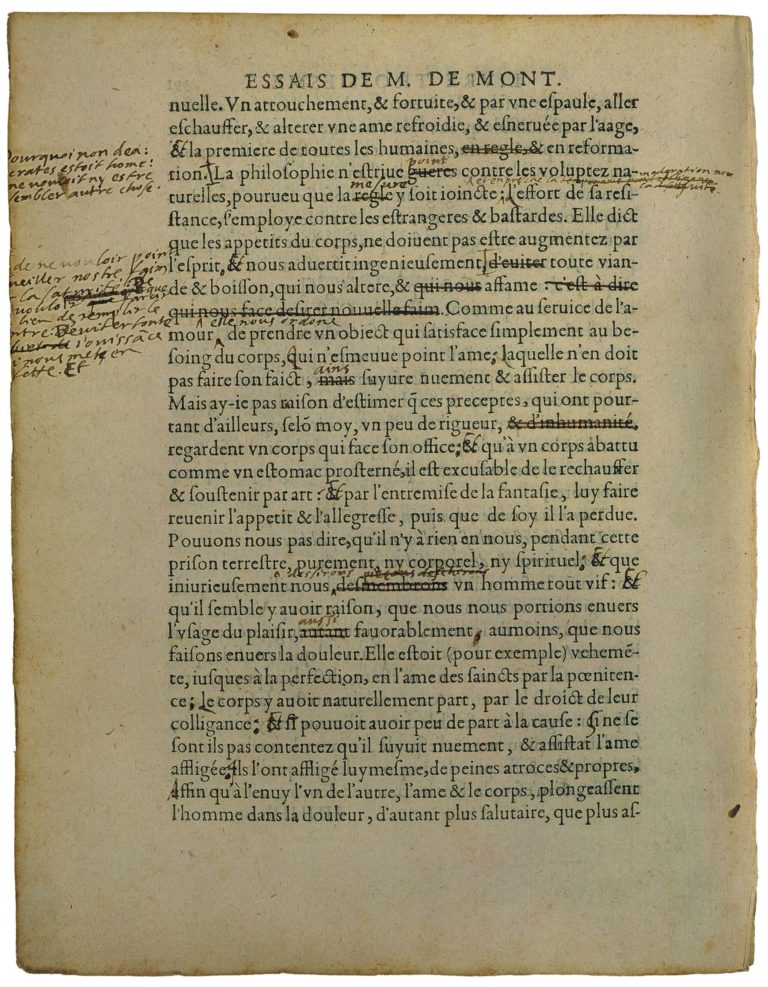 ESSAIS DE M. DE MONT.
nuelle. Vn attouchement, & fortuite, & par vne espaule, aller
eschauffer, & alterer vne ame refroidie, & esneruée par l'aage,
& la premiere de toutes les humaines, en regle, & en reforma-
Pourquoi non dea:
crates estoit home:
ne vouloit ny estre
sembler autre chose.
point
tion. La philosophie n'estriue gueres contre les voluptez na-
mesure
turelles, pourueu que la regle y soit ioincte; l'effort de sa resi-
stance, s'employe contre les estrangeres & bastardes. Elle dict
que les appetits du corps, ne doiuent pas estre augmentez par
l'esprit, & nous aduertit ingenieusement d'euiter toute vian-
de ne vouloir point
de & boisson, qui nous altere, & qui nous affame: c'est à dire
qui nous face desirer nouuelle faim. Comme au seruice de l'a-
elle nous ordone
mour, de prendre vn obiect qui satisface simplement au be-
soing du corps, qui n'esmeuue point l'ame; laquelle n'en doit
ains
pas faire son faict, mais suyure nuement & assister le corps.
Mais ay-ie pas raison d'estimer q̃ ces preceptes, qui ont pour-
tant d'ailleurs, selõ moy, vn peu de rigueur, & d'inhumanité,
regardent vn corps qui face son office; & qu'à vn corps abattu
comme vn estomac prosterné, il est excusable de le rechauffer
& soustenir par art: & par l'entremise de la fantasie, luy faire
reuenir l'appetit & l'allegresse, puis que de soy il l'a perdue.
Pouuons nous pas dire, qu'il n'y à rien en nous, pendant cette
prison terrestre, purement, ny corporel, ny spirituel: & que
dessirons
iniurieusement nous desmembrons vn homme tout vif: &
qu'il semble y auoir raison, que nous nous portions enuers
aussi
l'vsage du plaisir, autant fauorablement, aumoins, que nous
faisons enuers la douleur. Elle estoit (pour exemple) vehemẽ-
te, iusques à la perfection, en l'ame des saincts par la pœniten-
ce; le corps y auoit naturellement part, par le droict de leur
colligance; & si pouuoit auoir peu de part à la cause: si ne se
sont ils pas contentez qu'il suyuit nuement, & assistat l'ame
affligée, Ils l'ont affligé luymesme, de peines atroces & propres,
Affin qu'à l'enuy l'vn de l'autre, l'ame & le corps, plongeassent
l'homme dans la douleur, d'autant plus salutaire, que plus as-